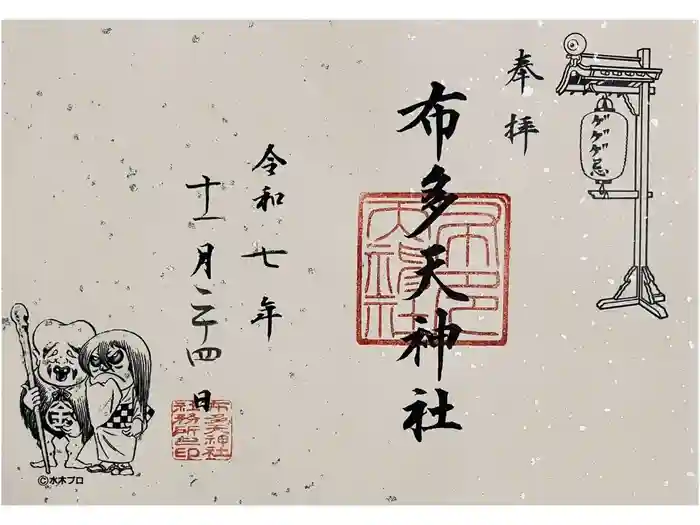 奉拝
ゲゲゲ忌
布多天神社
令和七年
十一月二十四日
布多天神社
社務所之印
©水木プロ